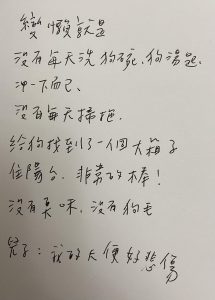 變懶就是
沒有每天洗狗碗、狗湯匙
沖一下而已、
沒有每天掃拖.
給狗找到了一個大箱子
住陽台. 非常的棒!
沒有臭味,沒有狗毛
兒子:我的大便好悲傷